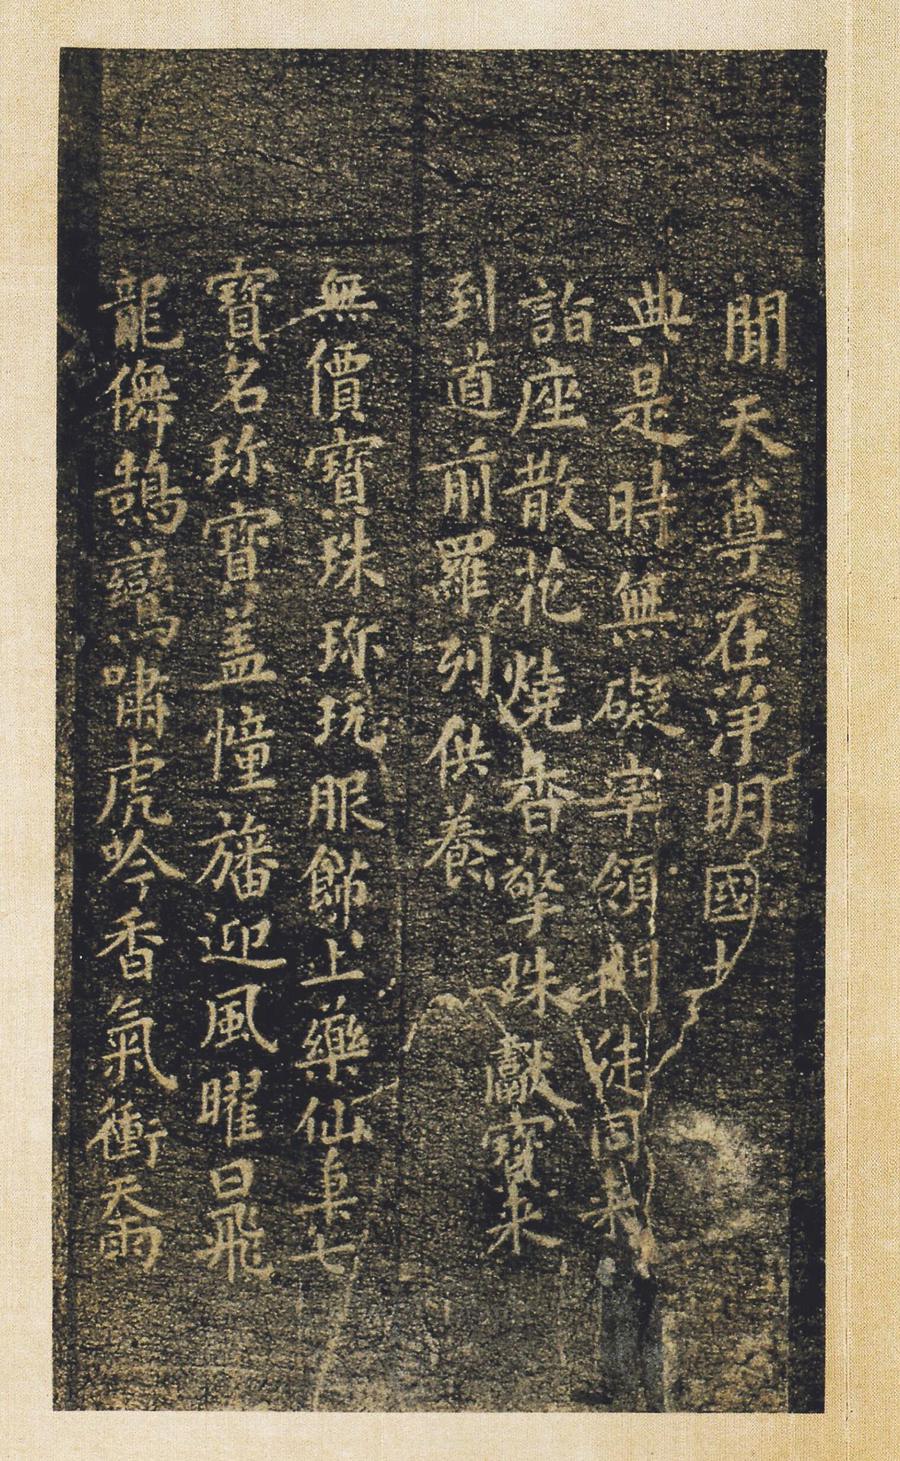 聞天尊在淨明國土
典是時無礙率領門徒同来
詣座散花燒香擎珠獻寶来
到道前羅列供養
無價寶珠珎玩服餝上藥仙阜七
寶名珎寶盖幢旛迎風曜日飛
龍儛鵠鸞嘯虎吟香氣衝天雨